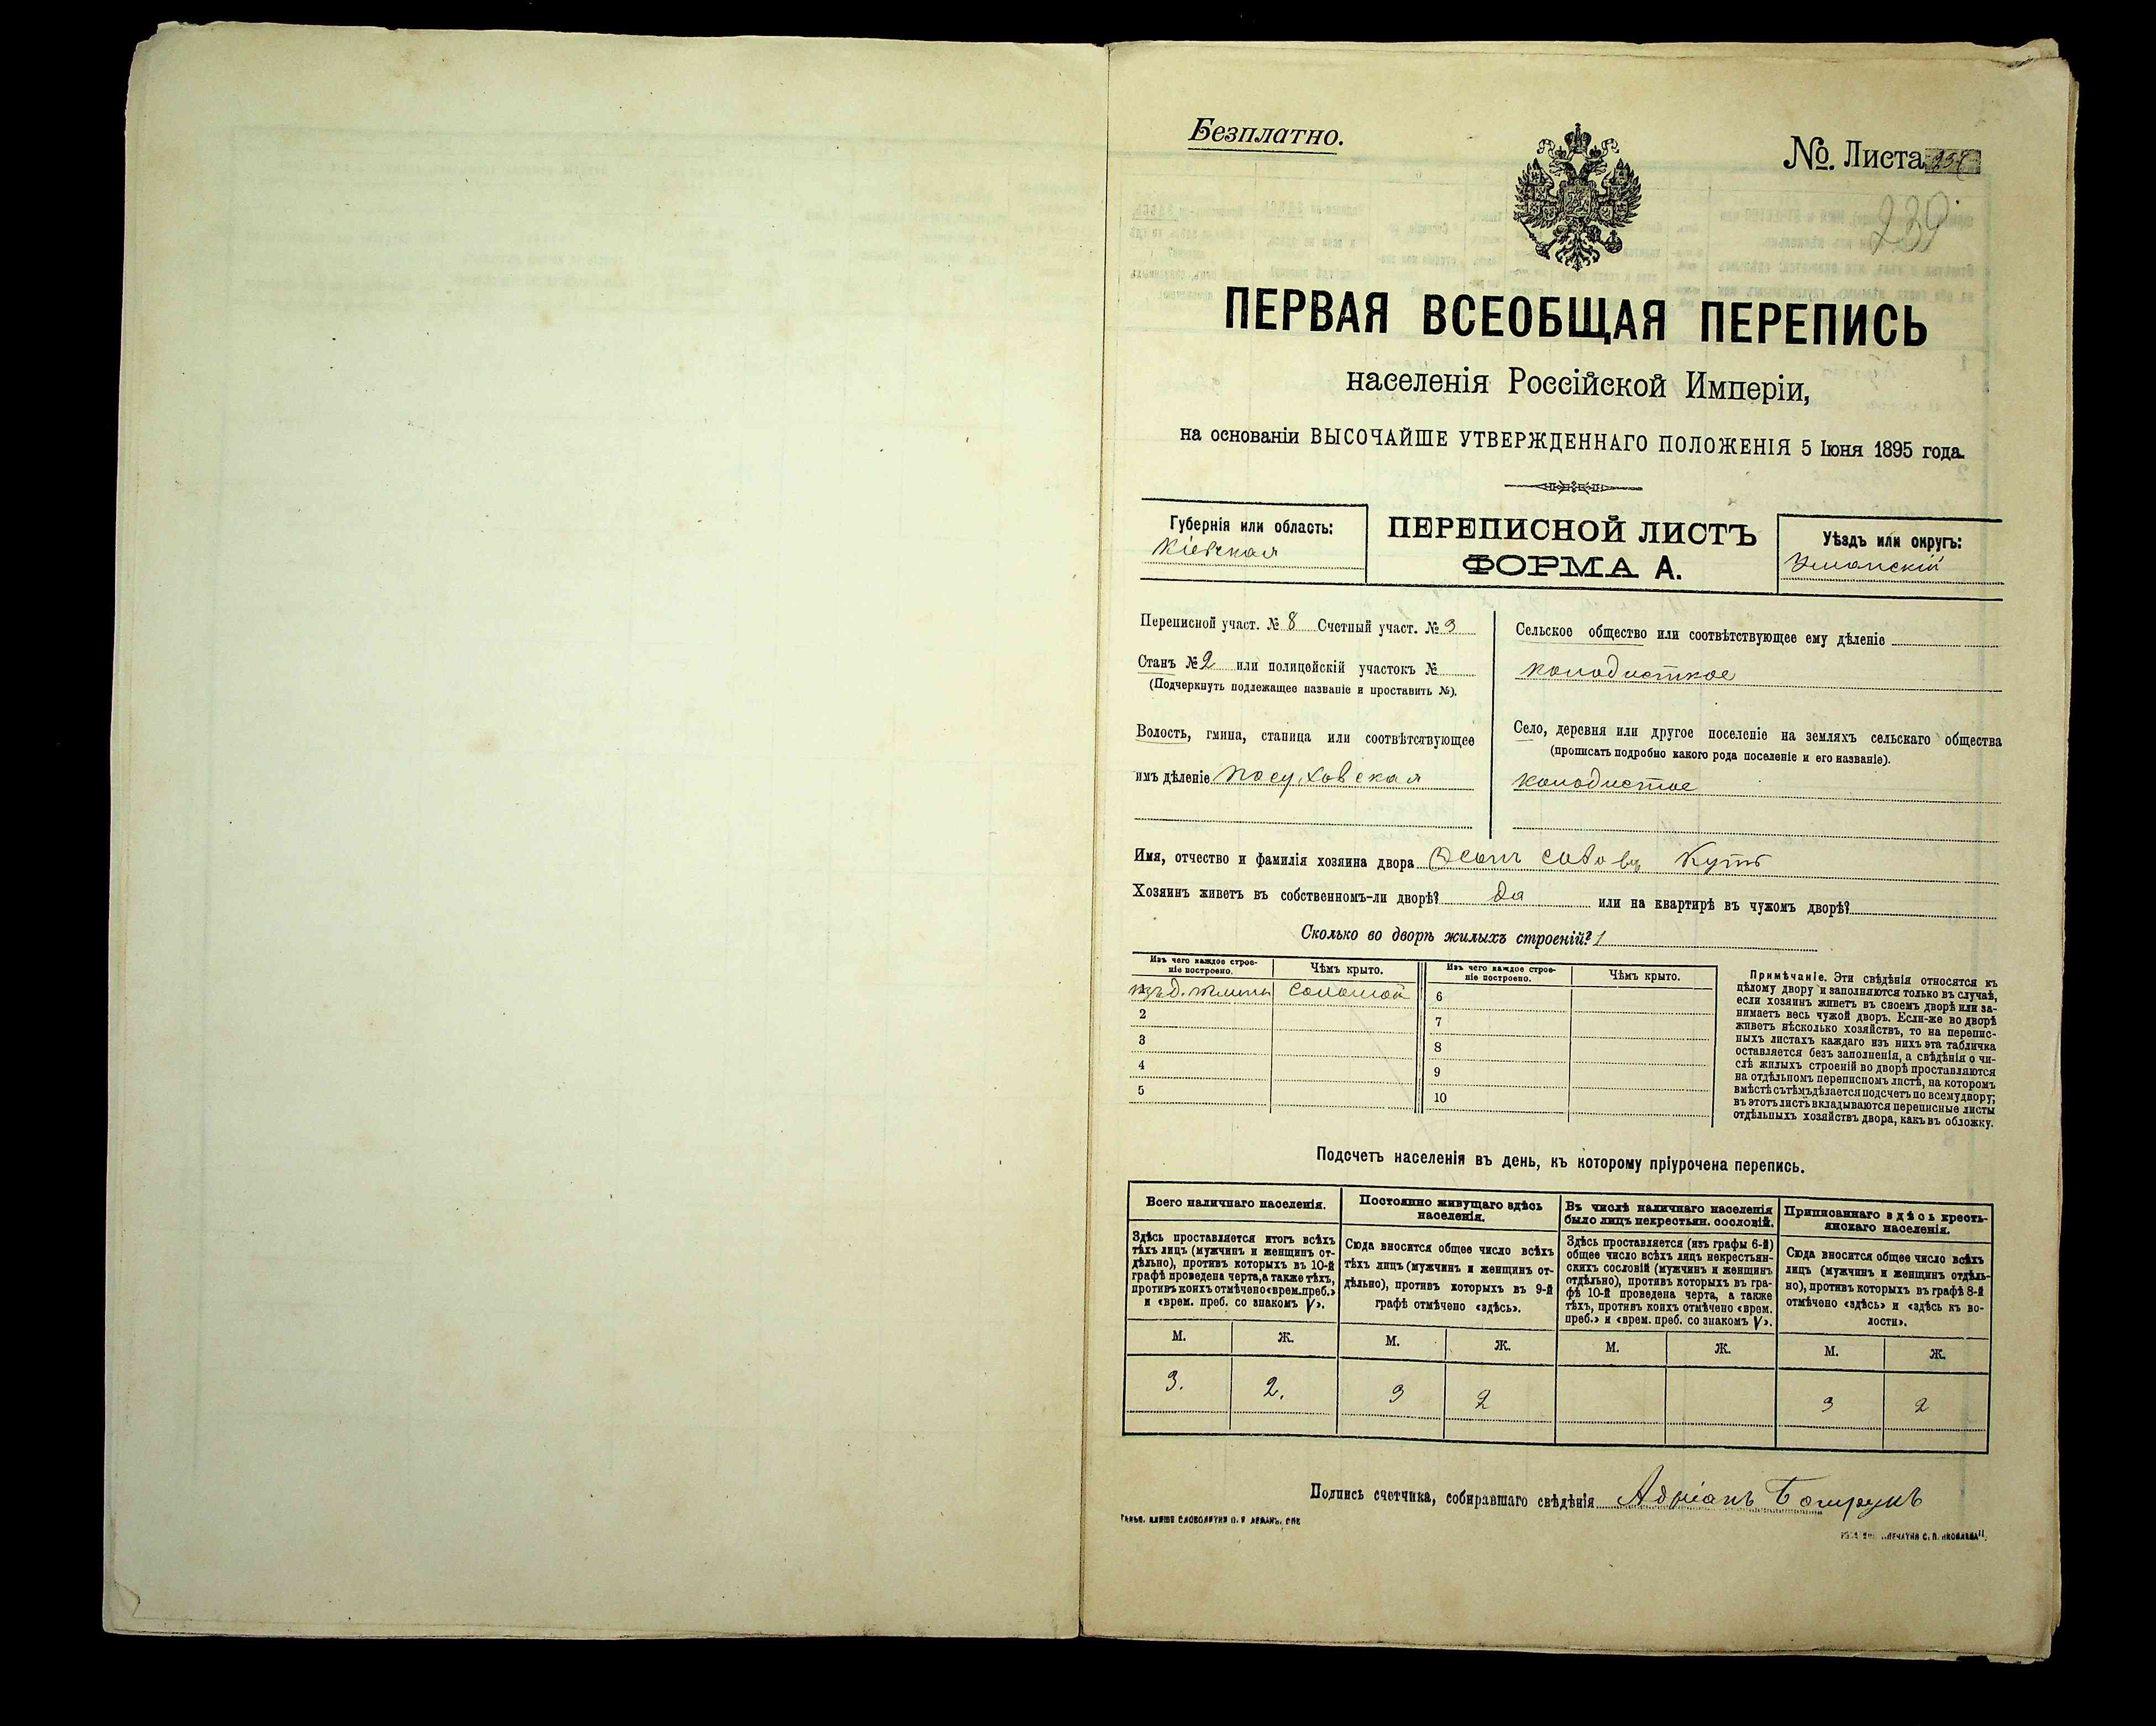 Безплатно.
№. Листа
239
ПЕРВАЯ ВСЕОБЩАЯ ПЕРЕПИСЬ
населенія Россійской Имперіи,
на основаніи ВЫСОЧАЙШЕ УТВЕРЖДЕННАГО ПОЛОЖЕНІЯ 5 Іюня 1895 года.
Губернія или область:
Кіевская
ПЕРЕПИСНОЙ ЛИСТЪ
ФОРМА А.
Уѣздъ или округъ:
Уманскій
Переписной участ. № 8 Счетный участ. № 3
Станъ № 2 или полицейскій участокъ №
(Подчеркнуть подлежащее названіе и проставить №).
Волость, гмина, станица или соотвѣтствующее
имъ дѣленіе Посуховская
Сельское общество или соотвѣтствующее ему дѣленіе
колодисткое
Село, деревня или другое поселеніе на земляхъ сельскаго общества
(прописать подробно какого рода поселеніе и его названіе).
колодистое
Имя, отчество и фамилія хозяина двора Осипъ Кутъ
Хозяинъ живетъ въ собственномъ-ли дворѣ? Да или на квартирѣ въ чужомъ дворѣ?
Сколько во дворѣ жилыхъ строеній? 1
Изъ чего каждое строе-
ніе построено.
Чѣмъ крыто.
Изъ чего каждое строе-
ніе построено.
Чѣмъ крыто.
соломой
6
2
7
3
8
4
9
5
10
Примѣчаніе. Эти свѣдѣнія относятся къ
цѣлому двору и заполняются только въ случаѣ,
если хозяинъ живетъ въ своемъ дворѣ или за-
нимаетъ весь чужой дворъ. Если-же во дворѣ
живетъ нѣсколько хозяйствъ, то на перепис-
ныхъ листахъ каждаго изъ нихъ эта табличка
оставляется безъ заполненія, а свѣдѣнія о чи-
слѣ жилыхъ строеній во дворѣ проставляются
на отдѣльномъ переписномъ листѣ, на которомъ
вмѣстѣ съ тѣмъ дѣлается подсчетъ по всему двору;
въ этотъ листъ вкладываются переписные листы
отдѣльныхъ хозяйствъ двора, какъ въ обложку.
Подсчетъ населенія въ день, къ которому пріурочена перепись.
Всего наличнаго населенія.
Здѣсь проставляется итогъ всѣхъ
тѣхъ лицъ (мужчинъ и женщинъ от-
дѣльно), противъ которыхъ въ 10-й
графѣ проведена черта, а также тѣхъ,
противъ коихъ отмѣчено «врем. преб.»
и «врем. преб. со знакомъ V».
Постоянно живущаго здѣсь
населенія.
Сюда вносится общее число всѣхъ
тѣхъ лицъ (мужчинъ и женщинъ от-
дѣльно), противъ которыхъ въ 9-й
графѣ отмѣчено «здѣсь».
Въ числѣ наличнаго населенія
было лицъ некрестьян. сословій.
Здѣсь проставляется (изъ графы 6-й)
общее число всѣхъ лицъ некрестьян-
скихъ сословій (мужчинъ и женщинъ
отдѣльно), противъ которыхъ въ гра-
фѣ 10-й проведена черта, а также
тѣхъ, противъ коихъ отмѣчено «врем.
преб.» и «врем. преб. со знакомъ V».
Приписаннаго здѣсь кресть-
янскаго населенія.
Сюда вносится общее число всѣхъ
лицъ (мужчинъ и женщинъ отдѣль-
но), противъ которыхъ въ графѣ 8-й
отмѣчено «здѣсь» и «здѣсь къ во-
лости».
М. Ж. М. Ж. М. Ж. М. Ж.
3. 2. 3 2 3 2
Подпись счетчика, собиравшаго свѣдѣнія Адріанъ